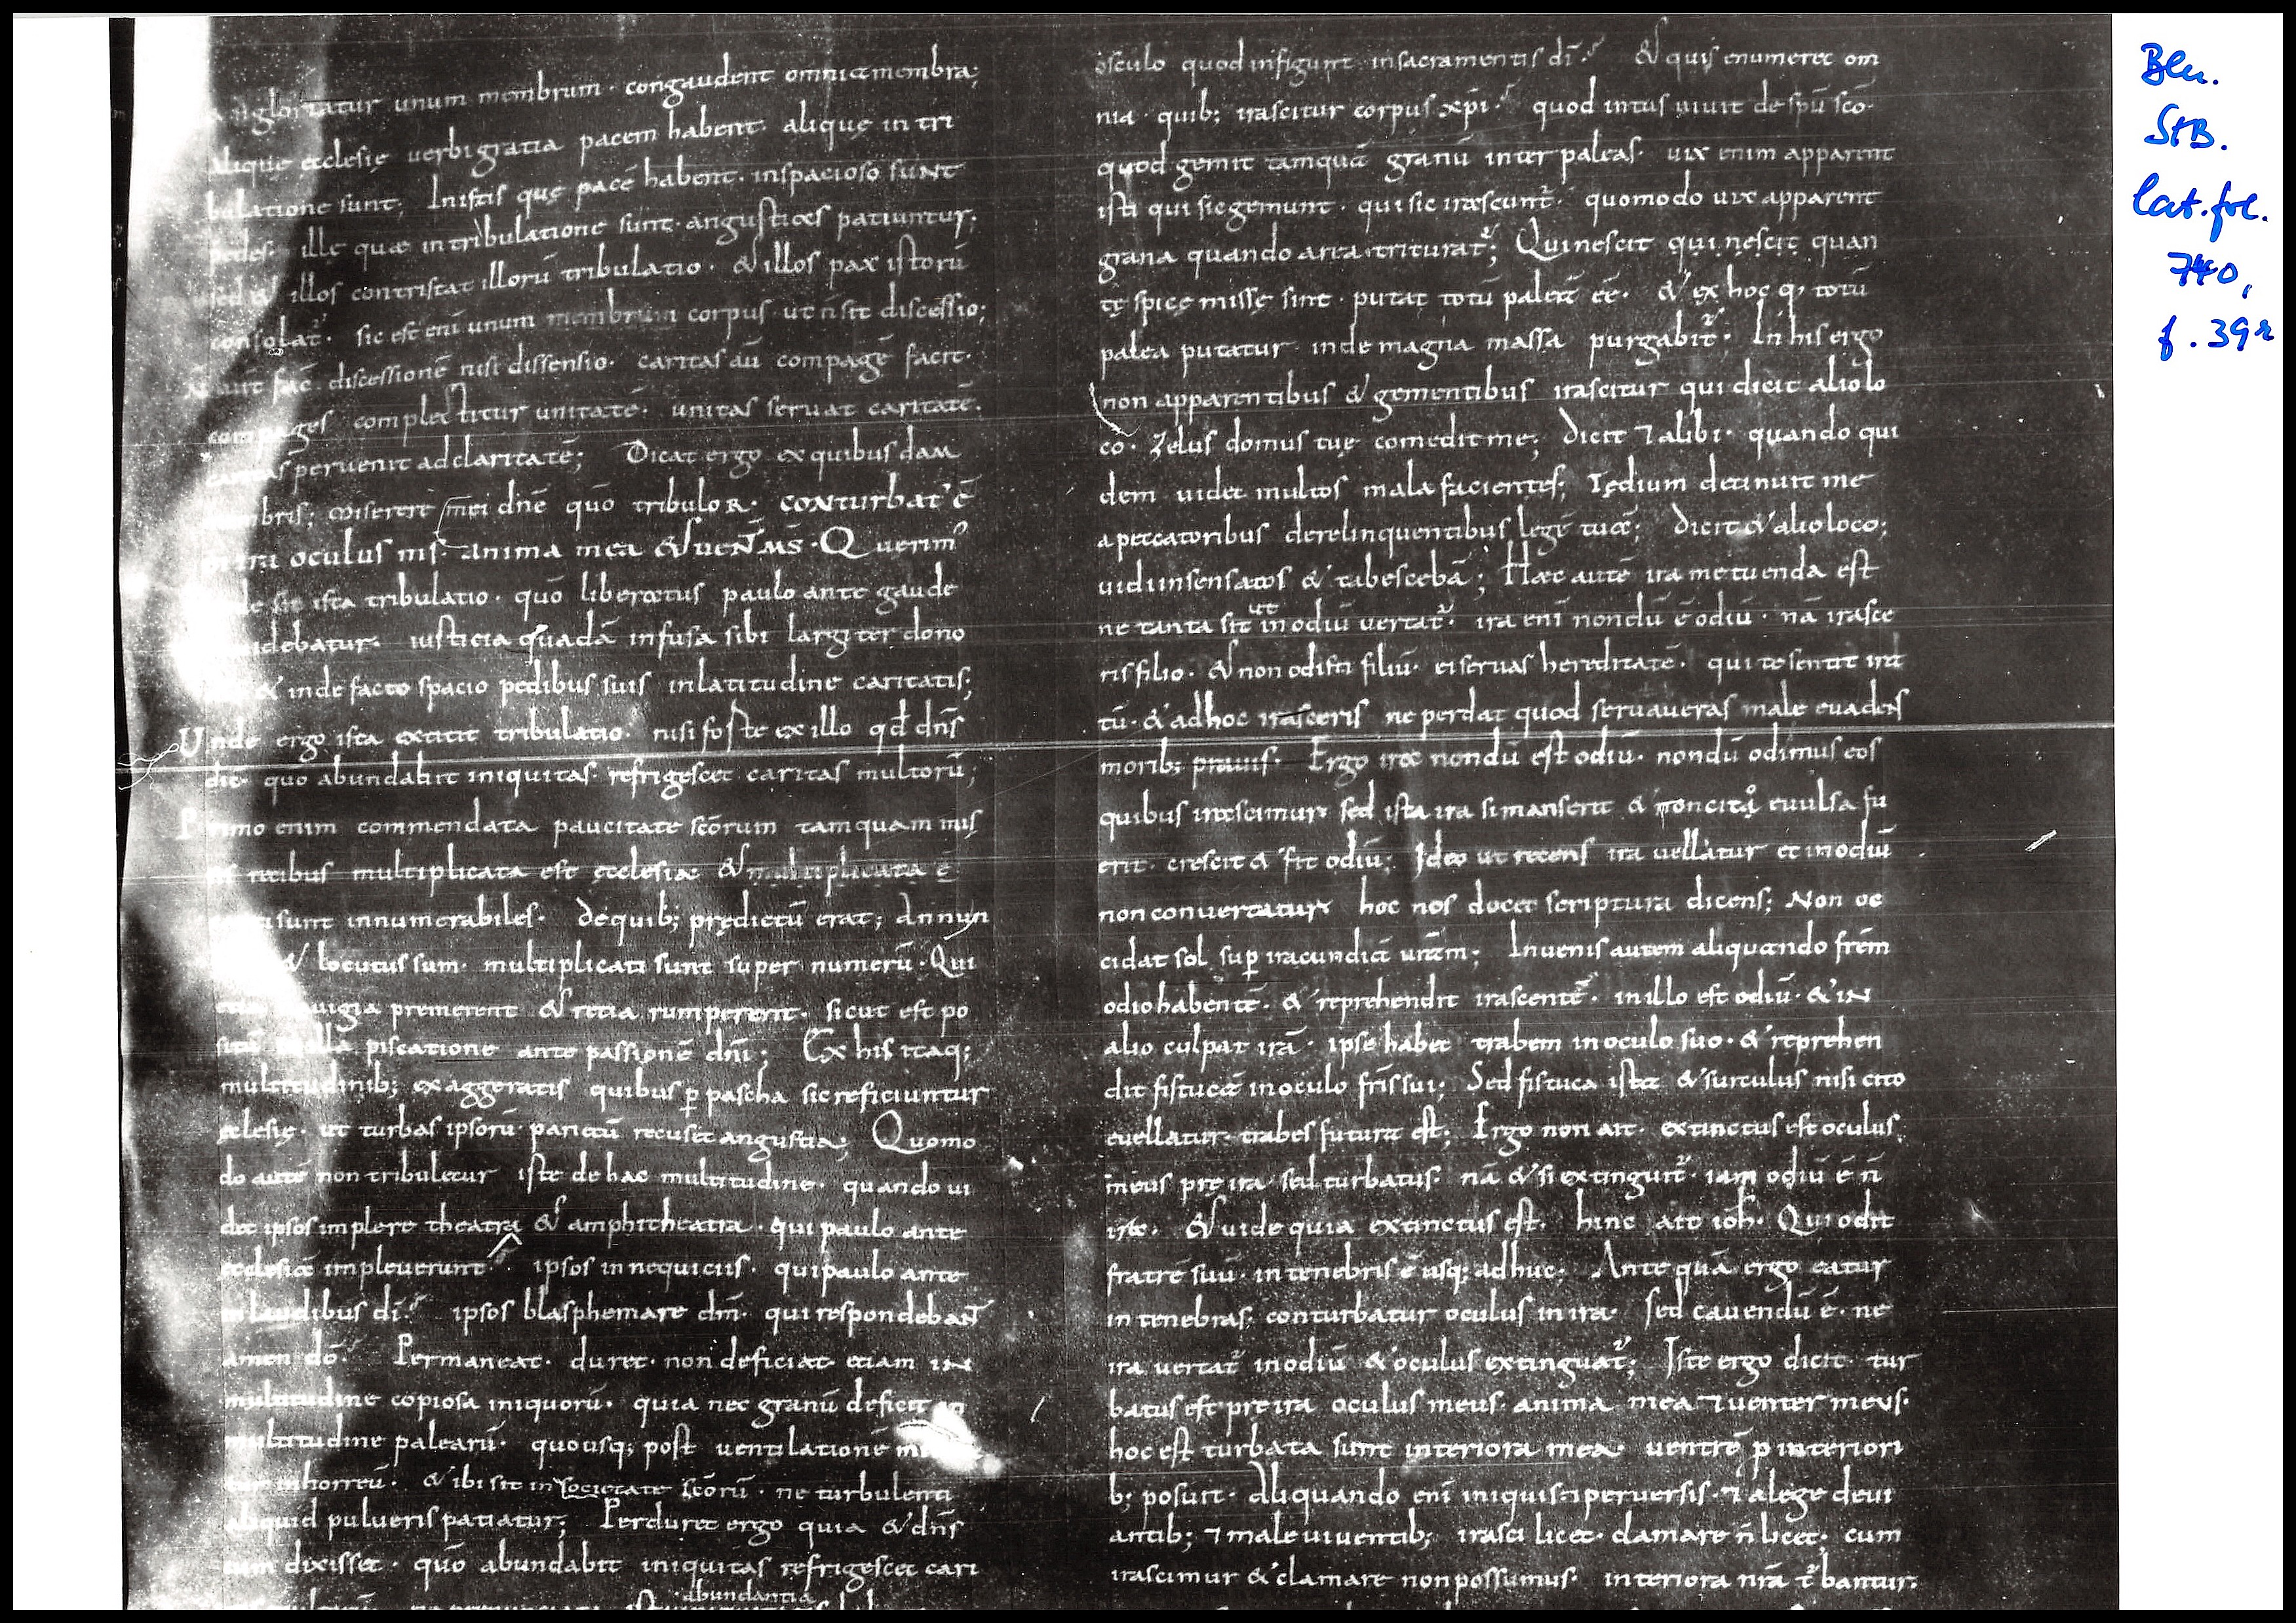 glorıatur unum membrum · congaudent omnia membra;
Alique ecclesię uerbi gratia pacem habent · alique in tri
bulatione sunt; In istis quę pacē habent · in spacioso sunt
pedes · ille quæ in tribulatione sunt · angustias patiuntur;
sed & illos contristat illorū tribulatio · & illos pax istorū
consolat᷑ · sic est eni unum membrum corpus · ut n̄ sit discessio;
discessionē nisi dissensio · caritas aū compagē facit ·
compages complectitur unitatē · unitas seruat caritatē ·
caritas peruenit ad claritatē; Dicat ergo ex quibusdam
membris; miserere mei dn̄e quō tribulor · conturbat' ē
oculus ms · anima mea & uent ms · Querim᾿
sit ista tribulatio · quō liberatus paulo ante gaude
uidebatur · iusticia quadā infusa sibi largiter dono
& inde facto spacio pedibus suis in latitudine caritatis;
Unde ergo ista extitit tribulatio · nisi foste ex illo qd̄ dn̄s
dic · quo abundabit iniquitas · refrigescet caritas multorū;
Primo enim commendata paucitate scōrum tamquam mis
sis retibus multiplicata est ecclesia & multiplicata ē
sunt innumerabiles · de quib; prędictū erat; Annun
& locutus sum · multiplicati sunt super numerū · Qui
nauigia premerent & retia rumperent · sicut est po
sitū illa piscatione ante passionē dn̄i; Ex his itaq;
multitudinib; exaggeratis quibus ꝑ pascha sic reficiuntur
ęclesię · ut turbas ipsorū parietū recuset angustia; Quomo
do autē non tribuletur iste de hac multitudine · quando ui
det ipsos implere theatra & amphitheatra · qui paulo ante
ecclesiæ impleuerunt · ipsos in nequiciis · qui paulo ante
in laudibus dī · ipsos blasphemare dm̄ · qui respondebant
amen dō · Permaneat · duret · non deficiat etiam in
multitudine copiosa iniquorū · quia nec granū deficit in
multitudine palearū · quousq; post uentilationē
in horreū · & ibi sit in societate scōrū · ne turbulenti
aliquid pulueris patiatur; Perduret ergo quia & dn̄s
cum dixisset · quō abundabit iniquitas refrigescet cari
abundantia
osculo quod infigunt in sacramentis dī · & quis enumeret om
nia · quib; irascitur corpus xp̄i · quod intus uiuit de sp̄u sc̄o ·
quod gemit tamquā granū inter paleas · uix enim apparent
isti qui sic gemunt · qui sic irascunt᷑ · quomodo uix apparent
grana quando area triturat᷑; Qui nescit qui nescit quan
tę spicę missę sint · putat totū paleā ēē · & ex hoc q totū
palea putatur inde magna massa purgabit᷑ · In his ergo
non apparentibus & gementibus irascitur qui dicit alio lo
co · Zelus domus tuę comedit me; Dicit ⁊ alibi · quando qui
dem uidet multos mala facientes; Tędium detinuit me
a peccatoribus derelinquentibus legē tuā; Dicit & alio loco;
uidi insensatos & tabescebā; Hæc autē ira metuenda est
ne tanta sit ut in odiū uertat᷑ · ira enī nondū ē odiū · nā irasce
ris filio · & non odisti filiū · ei seruas hereditatē · qui te sentit ira
tū · & adhoc irasceris ne perdat quod seruaueras male euadens
morib; prauis · Ergo iræ nondū est odiū · nondū odimus eos
quibus irascimur · sed ista ira si manserit & non cito euulsa fu
erit · crescit & fit odiū; Ideo ut recens ira uellatur et in odiū
non conuertatur · hoc nos docet scriptura dicens; Non oc
cidat sol sup̱ iracundiā urām; Inuenis autem aliquando frēm
odio habentē · & reprehendit irascentē · in illo est odiū · & in
alio culpat irā · ipse habet trabem in oculo suo · & reprehen
dit fistucā in oculo frīs sui; Sed fistuca ista & surculus nisi cito
euellatur · trabes futura est; Ergo non ait · extinctus est oculus
meus pre ira · sed turbatus · nā & si extinguit᷑ · iam odiū ē n̄
ira · & uide quia extinctus est · hinc ait ioh̄ · Qui odit
fratrē suū · in tenebris ē usq; adhuc · Ante quā ergo eatur
in tenebras; conturbatur oculus in ira · sed cauendū ē · ne
ira uertat᷑ in odiū & oculus extinguat᷑; Iste ergo dicit · tur
batus est pre ira oculus meus · anima mea ⁊ uenter meus ·
hoc est turbata sunt interiora mea · uentrē p interiori
b; posuit · Aliquando enī iniquis ⁊ peruersis · ⁊ a lege deui
antib; ⁊ male uiuentib; irasci licet · clamare n̄ licet; cum
irascimur & clamare non possumus · interiora nrā t᷑bantur;
Bln.
StB.
lat. fol.
740,
f. 39r